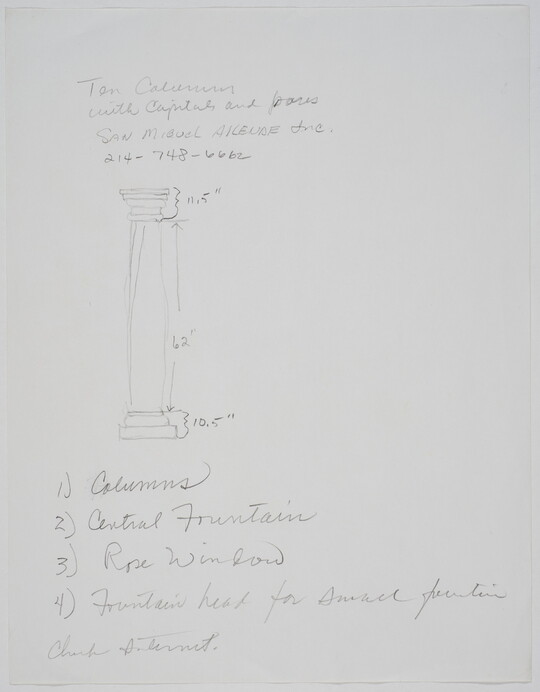 Ten Columns
with Capitals and bases
SAN MIGUEL Inc.
214-748-6662
11.5"
62"
10.5"
1) Columns
2) Central Fountain
3) Rose Window
4) Fountain head for small fountain
Check Internet.